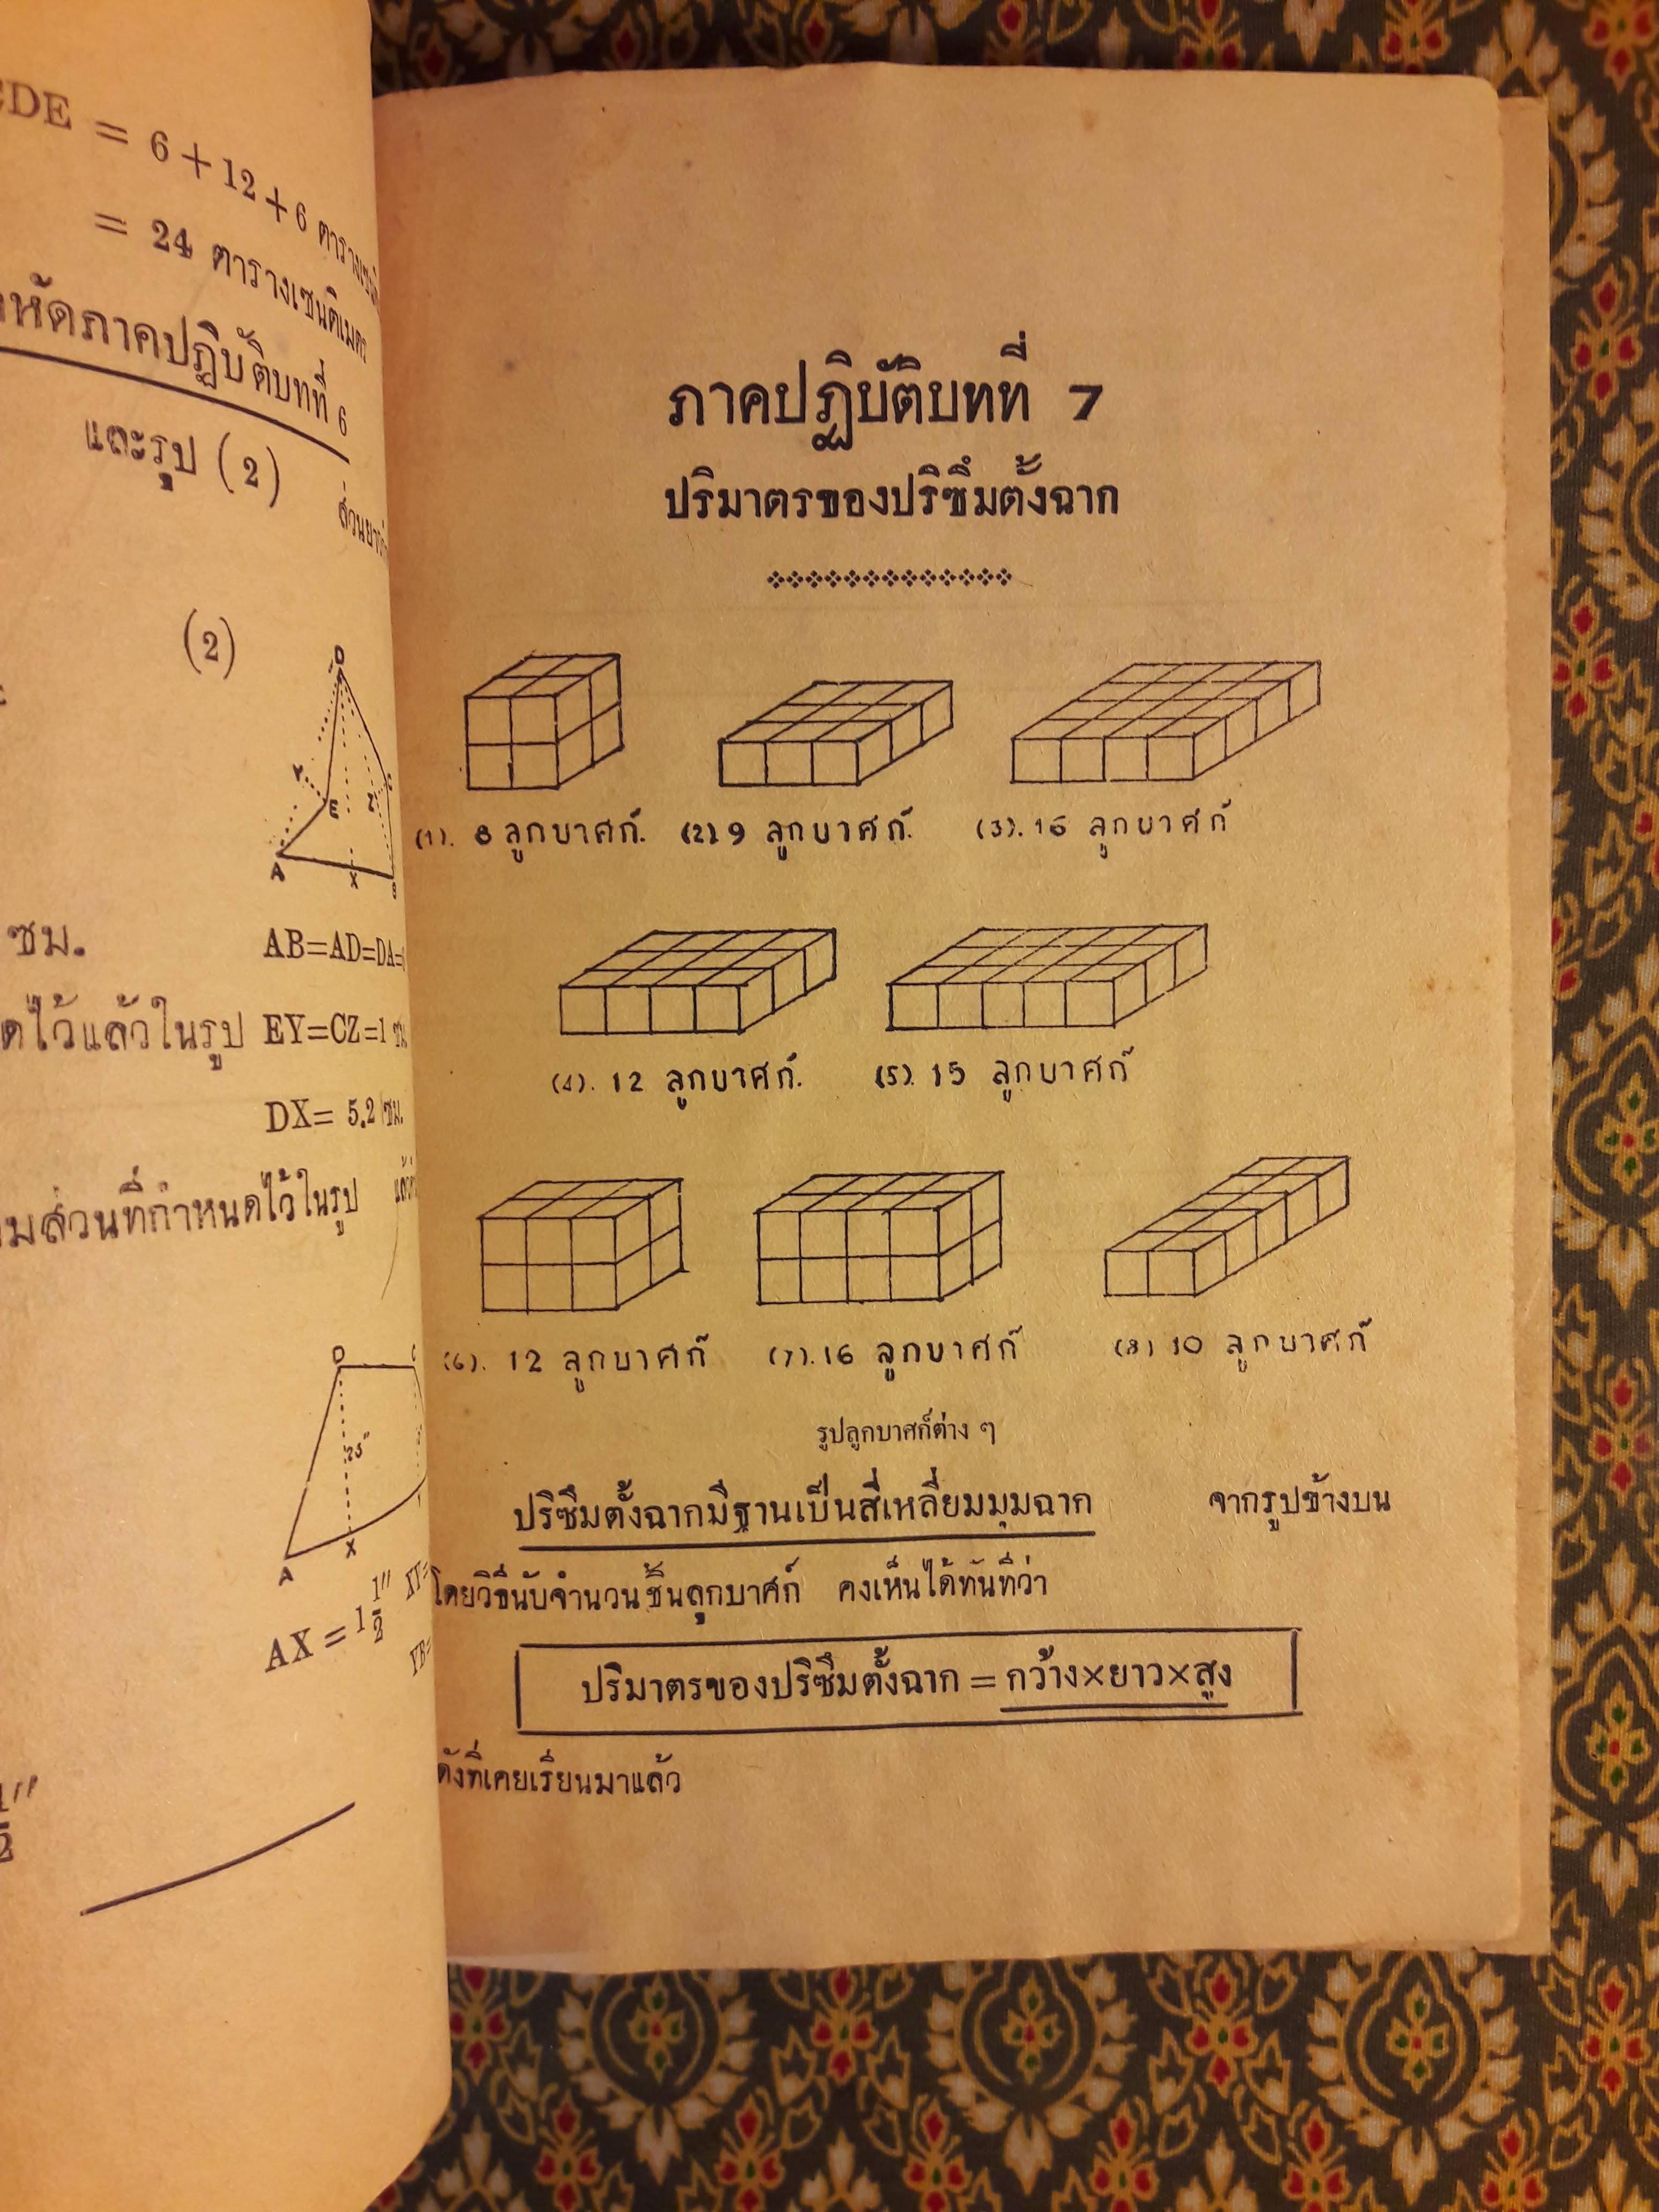 CDE = 6+12+6
= 24 ตารางเซนติเมตร
หัดภาคปฏิบัติบทที่ 6
และรูป (2)
(2)
D
Y
E
Z
A
X
B
ซม.
AB=AD=DA=
ดไว้แล้วในรูป
EY=CZ=1 ซม.
DX= 5.2 ซม.
มส่วนที่กำหนดไว้ในรูป
D
A
X
AX=1 1/2"
ภาคปฏิบัติบทที่ 7
ปริมาตรของปริซึมตั้งฉาก
(1). 8 ลูกบาศก์. (2). 9 ลูกบาศก์. (3). 16 ลูกบาศก์
(4). 12 ลูกบาศก์. (5). 15 ลูกบาศก์
(6). 12 ลูกบาศก์ (7). 16 ลูกบาศก์ (8) 10 ลูกบาศก์
รูปลูกบาศก์ต่าง ๆ
ปริซึมตั้งฉากมีฐานเป็นสี่เหลี่ยมมุมฉาก จากรูปข้างบน
โดยวิธีนับจำนวนชิ้นลูกบาศก์ คงเห็นได้ทันทีว่า
ปริมาตรของปริซึมตั้งฉาก = กว้าง×ยาว×สูง
ดังที่เคยเรียนมาแล้ว